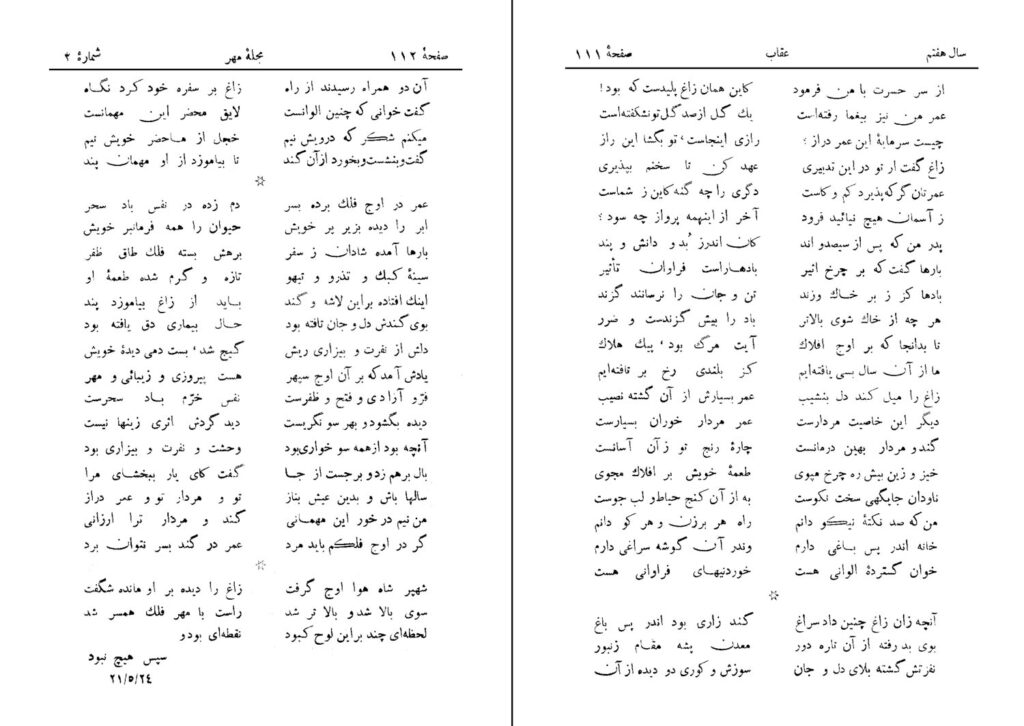 سال هفتم عقاب صفحهٔ ۱۱۱
از سر حسرت با من فرمود کاین همان زاغ پلیدست که بود!
عمر من نیز بیغما رفته‌است یك گل از صد گل تو نشکفته‌است
چیست سرمایهٔ این عمر دراز؟ رازی اینجاست، تو بگشا این راز
زاغ گفت ار تو در این تدبیری عهد کن تا سخنم بپذیری
عمرتان گر که پذیرد کم و کاست دگری را چه گنه کاین ز شماست
ز آسمان هیچ نیائید فرود آخر از اینهمه پرواز چه سود؟
پدر من که پس از سیصد و اند کان اندرز بُد و دانش و پند
بارها گفت که بر چرخ اثیر بادهاراست فراوان تأثیر
بادها کز ز بر خاك وزند تن و جان را نرسانند گزند
هر چه از خاك شوی بالاتر باد را بیش گزندست و ضرر
تا بدانجا که بر اوج افلاك آیت مرگ بود، پیك هلاك
ما از آن سال بسی یافته‌ایم کز بلندی رخ بر تافته‌ایم
زاغ را میل کند دل بنشیب عمر بسیارش از آن گشته نصیب
دیگر این خاصیت مردارست عمر مردار خوران بسیارست
گند و مردار بهین درمانست چارهٔ رنج تو زآن آسانست
خیز و زین بیش ره چرخ مپوی طعمهٔ خویش بر افلاك مجوی
ناودان جایگهی سخت نکوست به از آن کنج حیاط و لب جوست
من که صد نکتهٔ نیکو دانم راه هر برزن و هر کو دانم
خانه اندر پس باغی دارم وندر آن گوشه سراغی دارم
خوان گستردهٔ الوانی هست خوردنیهای فراوانی هست
☆
آنچه زان زاغ چنین داد سراغ گند زاری بود اندر پس باغ
بوی بد رفته از آن تا ره دور معدن پشه مقام زنبور
نفرتش گشته بلای دل و جان سوزش و کوری دو دیده از آن
صفحهٔ ۱۱۲ مجلهٔ مهر شمارهٔ ۴
آن دو همراه رسیدند از راه زاغ بر سفره خود کرد نگاه
گفت خوانی که چنین الوانست لایق محضر این مهمانست
میکنم شکر که درویش نیم خجل از ماحضر خویش نیم
گفت و بنشست و بخورد از آن گند تا بیاموزد از او مهمان پند
☆
عمر در اوج فلك برده بسر دم زده در نفس باد سحر
ابر را دیده بزیر پر خویش حیوان را همه فرمانبر خویش
بارها آمده شادان ز سفر برهش بسته فلك طاق ظفر
سینهٔ کبك و تذرو و تیهو تازه و گرم شده طعمهٔ او
اینك افتاده بر این لاشه و گند باید از زاغ بیاموزد پند
بوی گندش دل و جان تافته بود حال بیماری دق یافته بود
دلش از نفرت و بیزاری ریش گیج شد، بست دمی دیدهٔ خویش
یادش آمد که بر آن اوج سپهر هست پیروزی و زیبائی و مهر
فرّ و آزادی و فتح و ظفرست نفس خرّم باد سحرست
دیده بگشود و بهر سو نگریست دید گردش اثری زینها نیست
آنچه بود از همه سو خواری بود وحشت و نفرت و بیزاری بود
بال برهم زد و برجست از جا گفت کای یار ببخشای مرا
سالها باش و بدین عیش بناز تو و مردار تو و عمر دراز
من نیم در خور این مهمانی گند و مردار ترا ارزانی
گر در اوج فلکم باید مرد عمر در گند بسر نتوان برد
☆
شهپر شاه هوا اوج گرفت زاغ را دیده بر او مانده شگفت
سوی بالا شد و بالا تر شد راست با مهر فلك همسر شد
لحظه‌ای چند بر این لوح کبود نقطه‌ای بود و
سپس هیچ نبود
۲۱/۵/۲۴